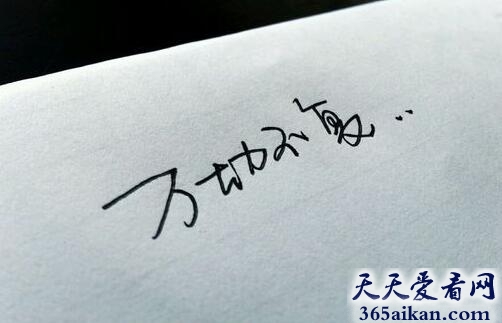 万劫不复..
天天爱看网
365aikan.com